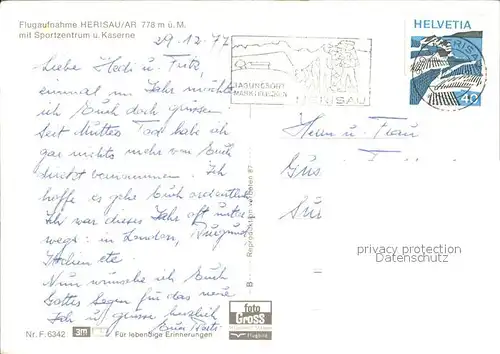 Flugaufnahme HERISAU/AR 778 m ü. M.
mit Sportzentrum u. Kaserne
29.12.77
Liebe Hedi u. Fritz,
einmal im Jahr möchte
ich Euch doch grüssen.
Seit Mutters Tod habe ich
gar nichts mehr von Euch
direkt vernommen. Ich
hoffe es gehe Euch ordentlich
Ich war dieses Jahr oft unter
wegs: in London, Burgund
Italien etc.
Nun wünsche ich Euch
Gottes Segen für das neue
Jahr u. grüsse herzlich
Euer
Nr. F. 6342 3m Für lebendige Erinnerungen
B - Reproduktion verboten
foto
Gross
Flugbild
TAGUNGSORT
HERISAU
HELVETIA
HERISAU
40
Herrn u. Frau
privacy protection
Datenschutz